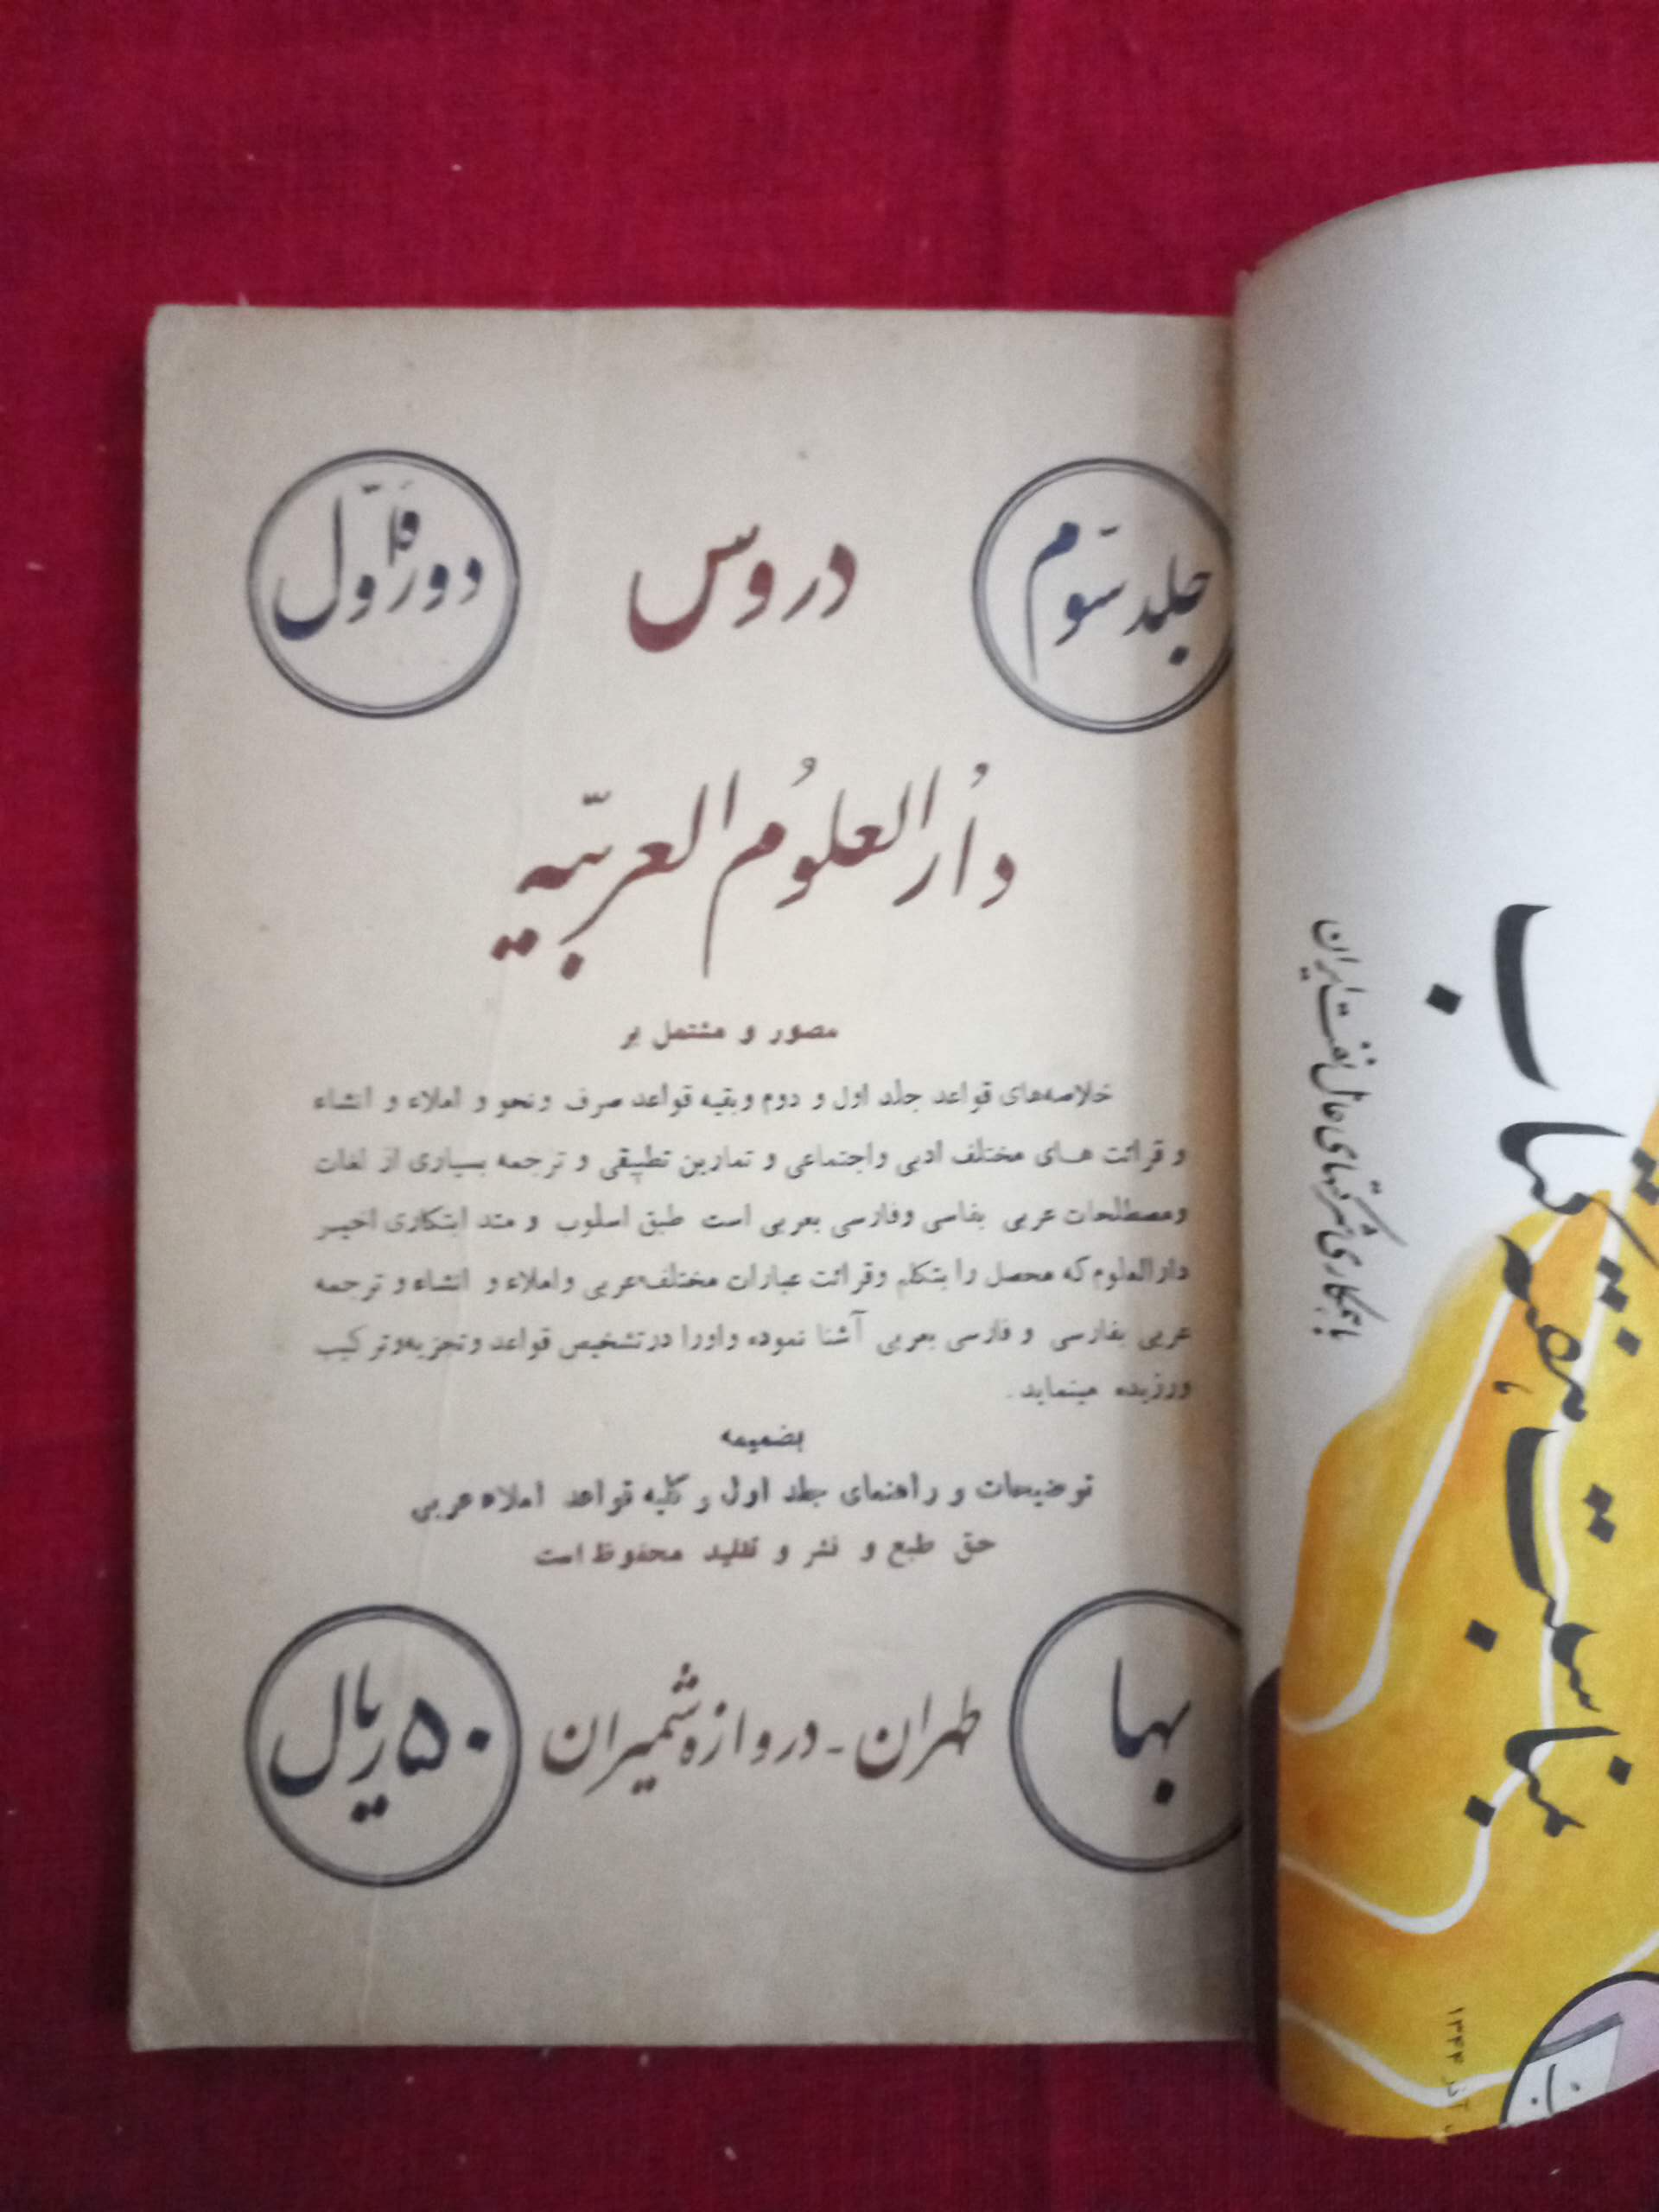 جلد سوّم
دروس
دورهٔ اوّل
دارُ العلُوم العربیّه
مصور و مشتمل بر
خلاصه‌های قواعد جلد اول و دوم وبقیه قواعد صرف ونحو و املاء و انشاء
و قرائت هـای مختلف ادبی واجتماعی و تمارین تطبیقی و ترجمه بسیاری از لغات
ومصطلحات عربی بفاسی وفارسی بعربی است طبق اسلوب و متد ابتکاری اخیـر
دارالعلوم که محصل را بتکلم وقرائت عبارات مختلفه عربی واملاء و انشاء و ترجمه
عربی بفارسی و فارسی بعربی آشنا نموده واورا در تشخیص قواعد وتجزیه وترکیب
ورزیده مینماید.
بضمیمه
توضیحات و راهنمای جلد اول و کلیه قواعد املاء عربی
حق طبع و نشر و تقلید محفوظ است
بها
طهران - دروازه شمیران
۵۰ ریال
بمناسبت هفته کتاب
با همکاری شرکتهای عامل نفت ایران
آذر ۱۳۴۴